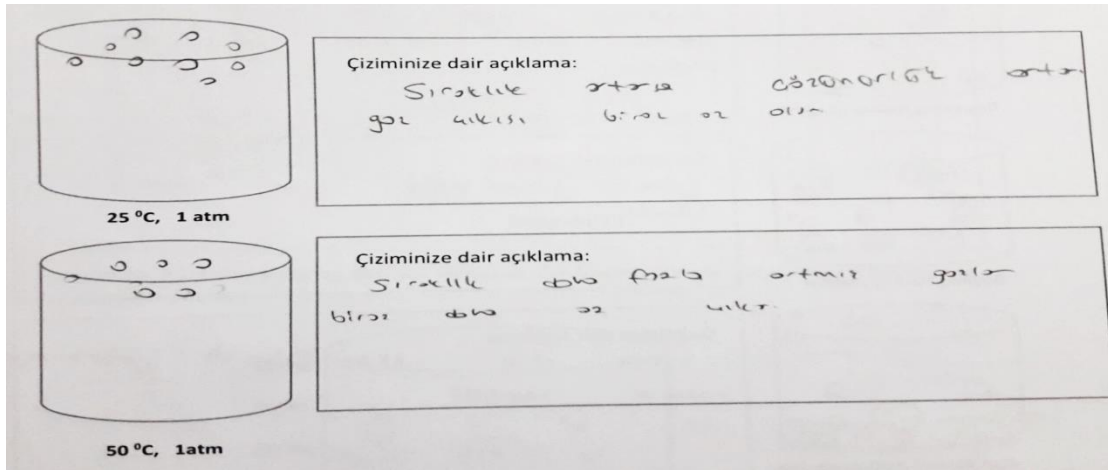 Çiziminize dair açıklama:
Sıcaklık artarsa çözünürlük artar.
gaz çıkışı biraz az olur
25 ⁰C, 1 atm
Çiziminize dair açıklama:
Sıcaklık daha fazla artmış gazlar
biraz daha az çıkar.
50 ⁰C, 1atm